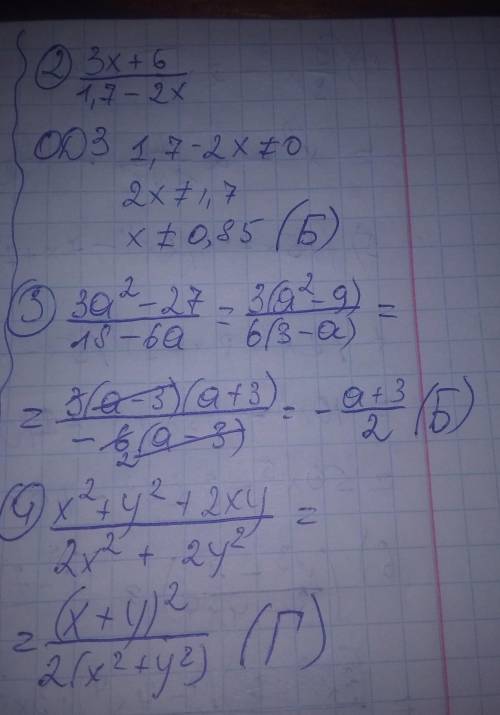 ② 3x+6 / 1,7-2x
ОДЗ 1,7-2x≠0
2x≠1,7
x≠0,85 (Б)
③ 3a²-27 / 18-6a = 3(a²-9) / 6(3-a) =
= 3(a-3)(a+3) / -6(a-3) 2 = - a+3 / 2 (Б)
④ x²+y²+2xy / 2x²+2y² =
= (x+y)² / 2(x²+y²) (Г)